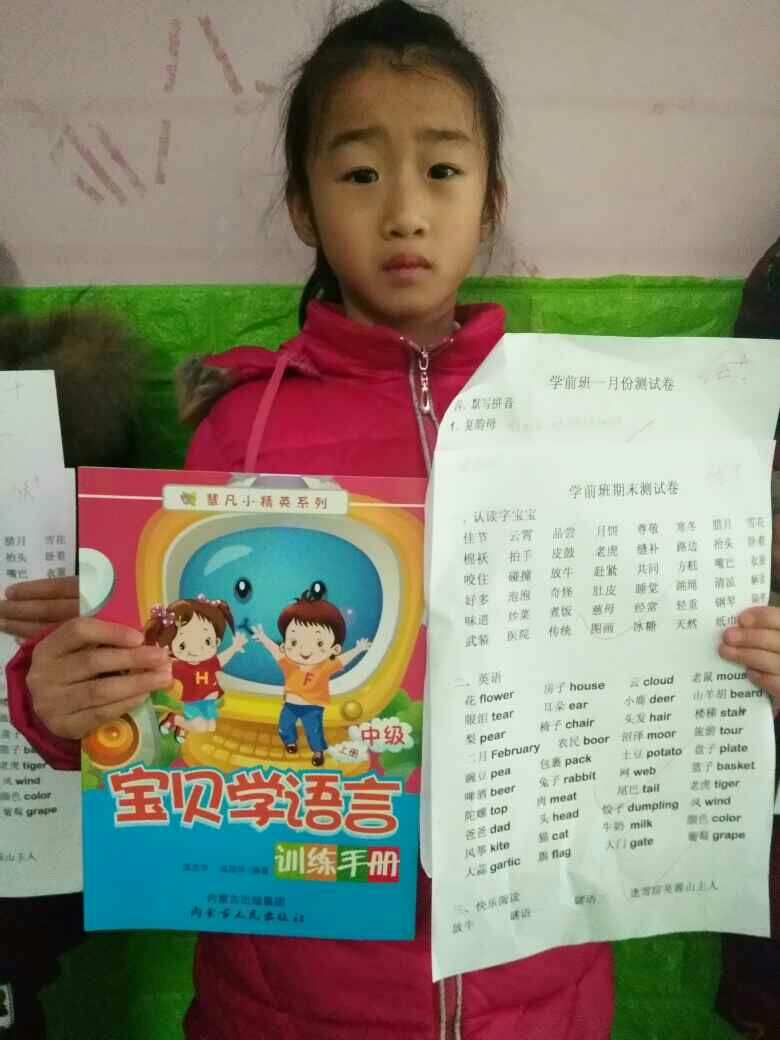 慧凡小精英系列
H
F
中级
上册
宝贝学语言
训练手册
内蒙古出版集团
内蒙古人民出版社
学前班一月份测试卷
默写拼音
1、复韵母
学前班期末测试卷
一、认读字宝宝
佳节 云霄 品尝 月饼 尊敬 寒冬 腊月 雪花
棉袄 拍手 皮鼓 老虎 缝补 路边 抬头 卧着
咬住 碰撞 放牛 赶紧 共同 方糕 嘴巴 衣服
好多 泡泡 奇怪 肚皮 睡觉 跳绳 清凉
味道 炒菜 煮饭 慈母 经常 轻重 钢琴
武装 医院 传统 图画 冰糖 天然 纸巾
二、英语
花 flower 房子 house 云 cloud 老鼠 mous
眼泪 tear 耳朵 ear 小鹿 deer 山羊胡 beard
梨 pear 椅子 chair 头发 hair 楼梯 stair
二月 February 农民 boor 沼泽 moor 旅游 tour
豌豆 pea 包裹 pack 土豆 potato 盘子 plate
啤酒 beer 兔子 rabbit 网 web 篮子 basket
陀螺 top 肉 meat 尾巴 tail 老虎 tiger
爸爸 dad 头 head 饺子 dumpling 风 wind
风筝 kite 猫 cat 牛奶 milk 颜色 color
大蒜 garlic 旗 flag 大门 gate 葡萄 grape
三、快乐阅读
放牛 谜语一 谜语二 逢雪宿芙蓉山主人
腊月 雪花
抬头 卧着
嘴巴 衣服
老虎 tiger
风 wind
颜色 color
葡萄 grape
蓉山主人